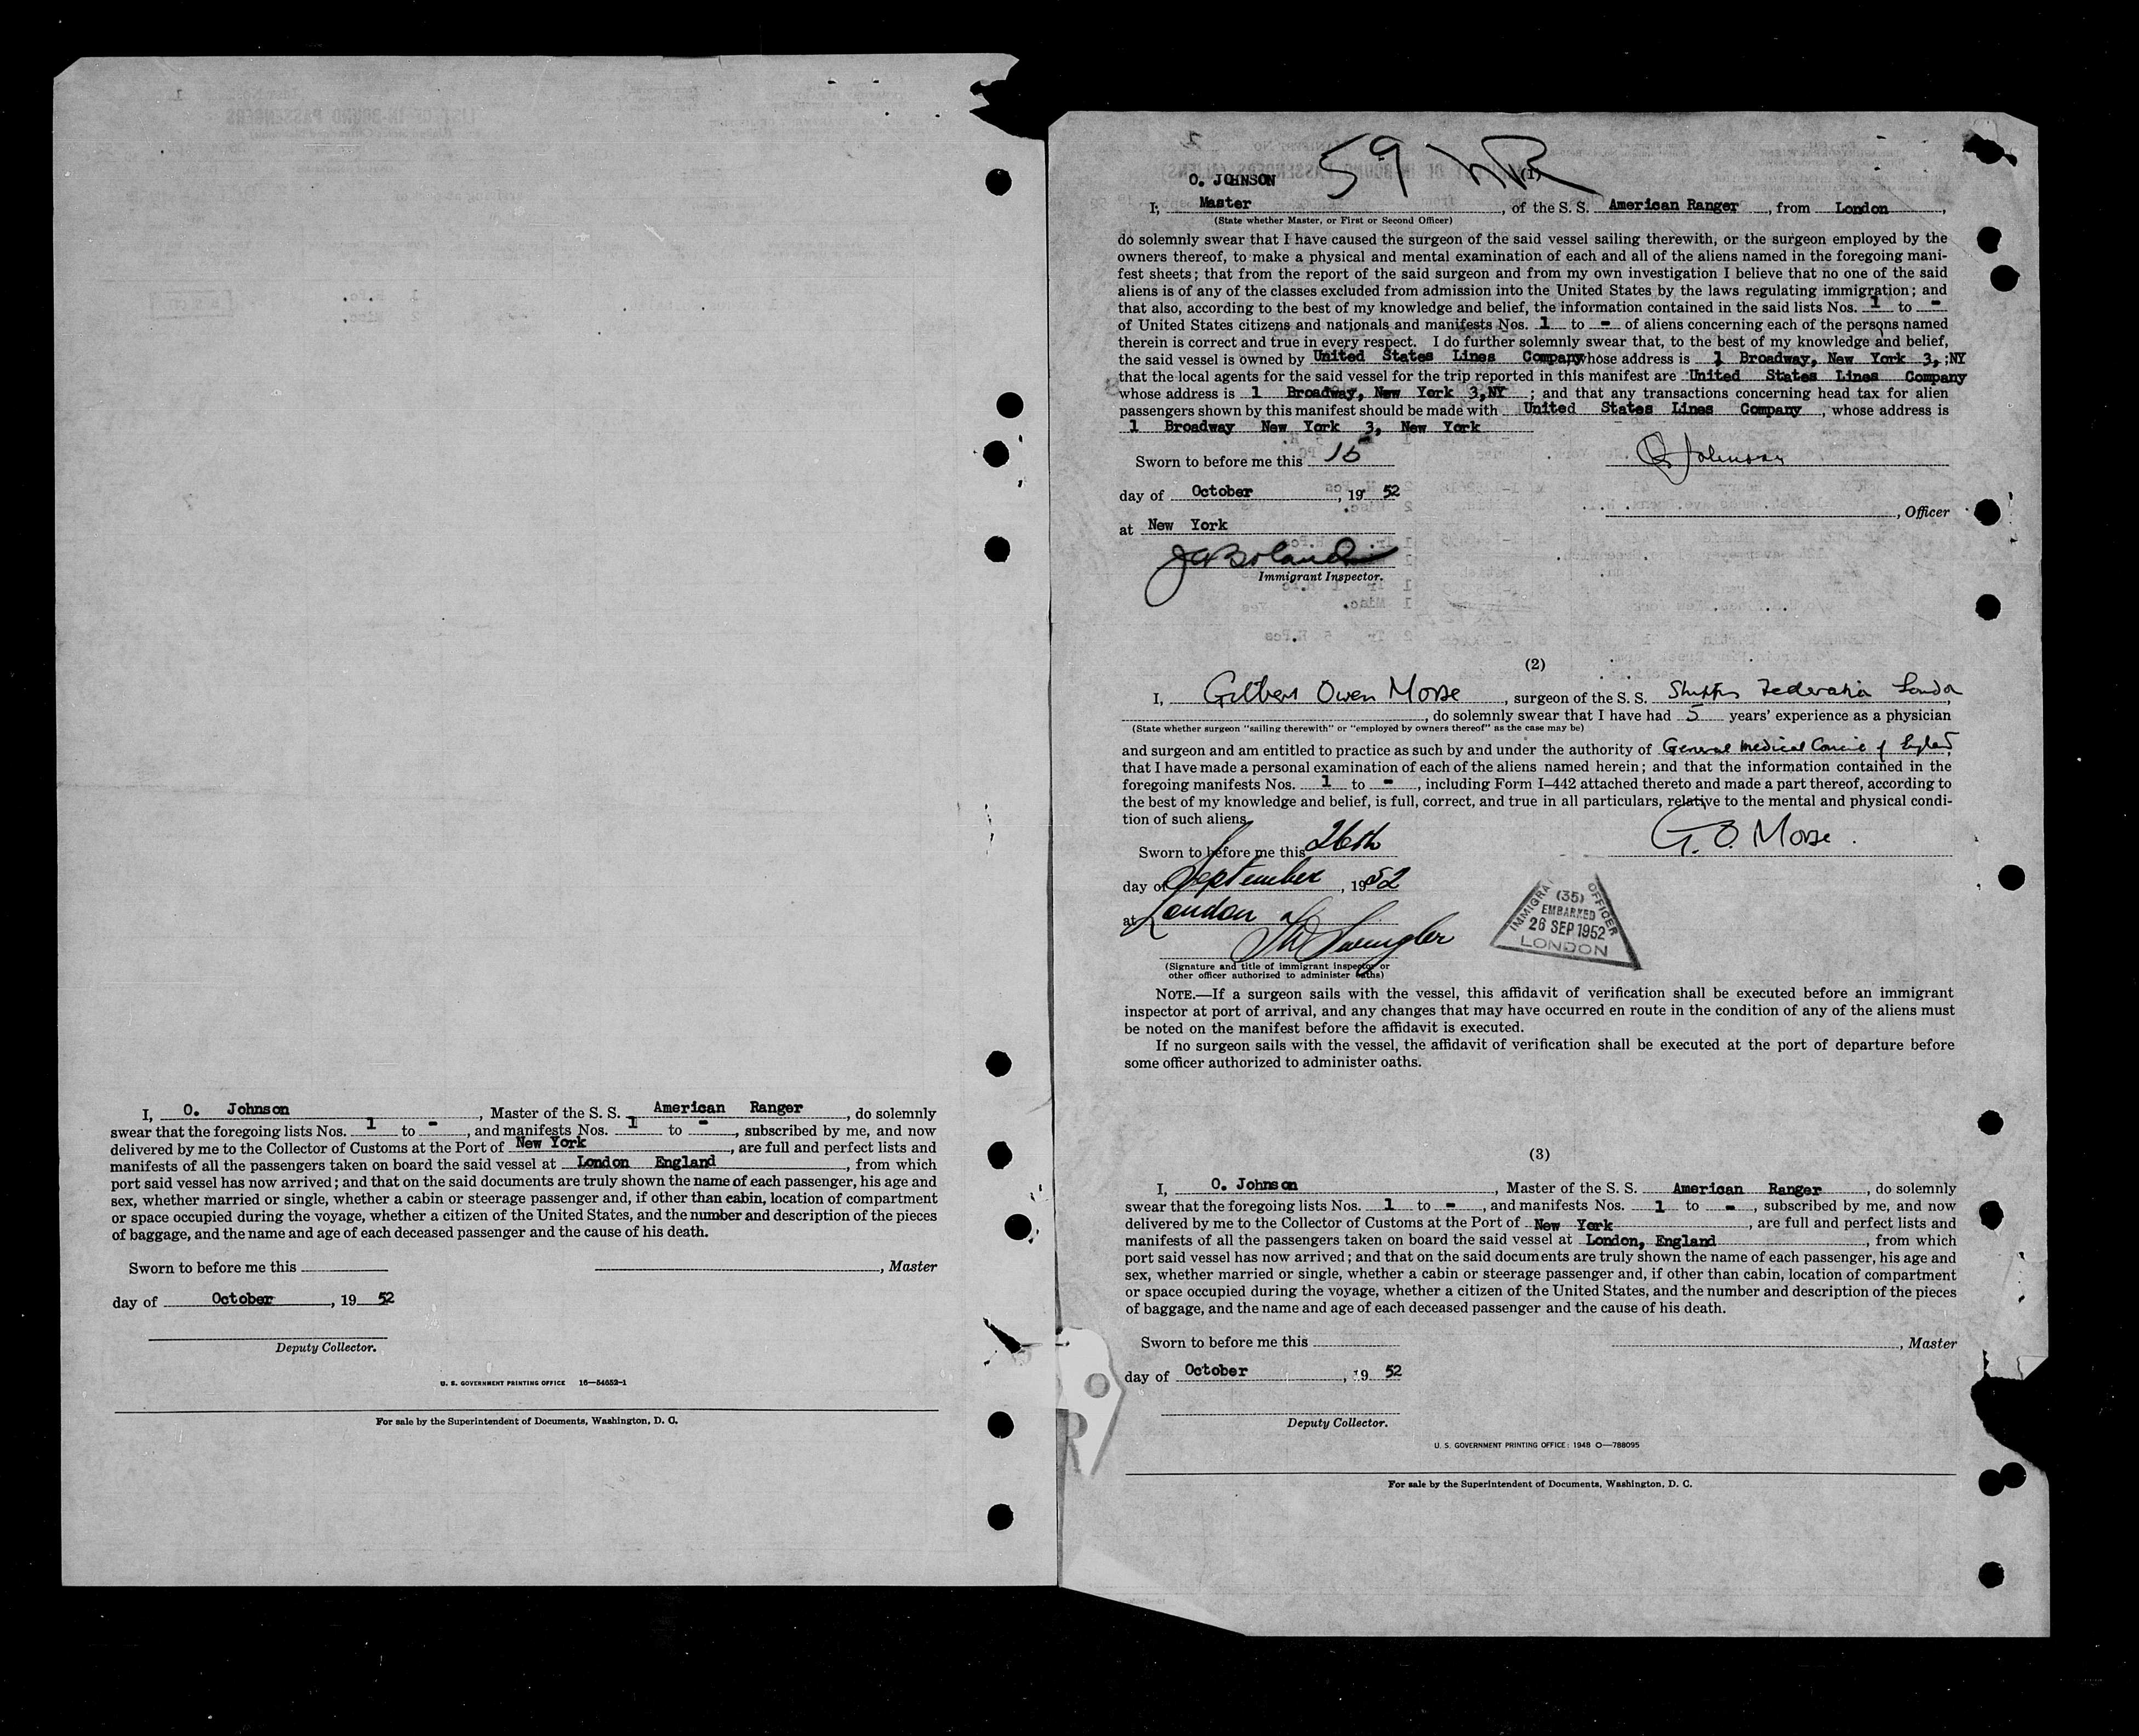 I, O. Johnson, Master of the S. S. American Ranger, do solemnly
swear that the foregoing lists Nos. 1 to -, and manifests Nos. 1 to -, subscribed by me, and now
delivered by me to the Collector of Customs at the Port of New York, are full and perfect lists and
manifests of all the passengers taken on board the said vessel at London England, from which
port said vessel has now arrived; and that on the said documents are truly shown the name of each passenger, his age and
sex, whether married or single, whether a cabin or steerage passenger and, if other than cabin, location of compartment
or space occupied during the voyage, whether a citizen of the United States, and the number and description of the pieces
of baggage, and the name and age of each deceased passenger and the cause of his death.
Sworn to before me this , Master
day of October, 19 52
Deputy Collector.
U. S. GOVERNMENT PRINTING OFFICE 16—54652-1
For sale by the Superintendent of Documents, Washington, D. C.
59
(1)
O. JOHNSON
I, Master, of the S. S. American Ranger, from London,
(State whether Master, or First or Second Officer)
do solemnly swear that I have caused the surgeon of the said vessel sailing therewith, or the surgeon employed by the
owners thereof, to make a physical and mental examination of each and all of the aliens named in the foregoing mani-
fest sheets; that from the report of the said surgeon and from my own investigation I believe that no one of the said
aliens is of any of the classes excluded from admission into the United States by the laws regulating immigration; and
that also, according to the best of my knowledge and belief, the information contained in the said lists Nos. 1 to -
of United States citizens and nationals and manifests Nos. 1 to - of aliens concerning each of the persons named
therein is correct and true in every respect. I do further solemnly swear that, to the best of my knowledge and belief,
the said vessel is owned by United States Lines Company whose address is 1 Broadway, New York 3, ;NY
that the local agents for the said vessel for the trip reported in this manifest are United States Lines Company
whose address is 1 Broadway, New York 3,NY; and that any transactions concerning head tax for alien
passengers shown by this manifest should be made with United States Lines Company, whose address is
1 Broadway New York 3, New York
Sworn to before me this 15 O Johnson
day of October, 19 52
, Officer
at New York
Immigrant Inspector.
(2)
I, Gilbert Owen Morse, surgeon of the S. S. Shipping Federation London,
, do solemnly swear that I have had 5 years' experience as a physician
(State whether surgeon "sailing therewith" or "employed by owners thereof" as the case may be)
and surgeon and am entitled to practice as such by and under the authority of General Medical Council of England,
that I have made a personal examination of each of the aliens named herein; and that the information contained in the
foregoing manifests Nos. 1 to -, including Form I–442 attached thereto and made a part thereof, according to
the best of my knowledge and belief, is full, correct, and true in all particulars, relative to the mental and physical condi-
tion of such aliens.
G. O. Morse.
Sworn to before me this 26th
day of September, 1952
at London
IMMIGRATION OFFICER
(35)
EMBARKED
26 SEP 1952
LONDON
(Signature and title of immigrant inspector or
other officer authorized to administer oaths)
NOTE.—If a surgeon sails with the vessel, this affidavit of verification shall be executed before an immigrant
inspector at port of arrival, and any changes that may have occurred en route in the condition of any of the aliens must
be noted on the manifest before the affidavit is executed.
If no surgeon sails with the vessel, the affidavit of verification shall be executed at the port of departure before
some officer authorized to administer oaths.
(3)
I, O. Johnson, Master of the S. S. American Ranger, do solemnly
swear that the foregoing lists Nos. 1 to -, and manifests Nos. 1 to -, subscribed by me, and now
delivered by me to the Collector of Customs at the Port of New York, are full and perfect lists and
manifests of all the passengers taken on board the said vessel at London, England, from which
port said vessel has now arrived; and that on the said documents are truly shown the name of each passenger, his age and
sex, whether married or single, whether a cabin or steerage passenger and, if other than cabin, location of compartment
or space occupied during the voyage, whether a citizen of the United States, and the number and description of the pieces
of baggage, and the name and age of each deceased passenger and the cause of his death.
Sworn to before me this , Master
day of October, 19 52
Deputy Collector.
U. S. GOVERNMENT PRINTING OFFICE: 1948 O—788095
For sale by the Superintendent of Documents, Washington, D. C.